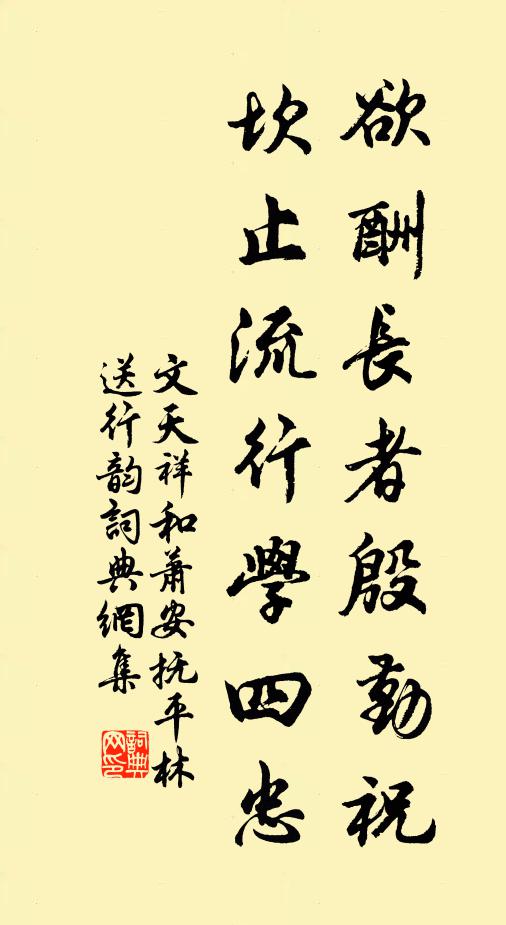 欲酬長者殷勤祝
坎止流行學四忠
文天祥和蕭安抚平林
送行韵詞典網集
詞典
网印